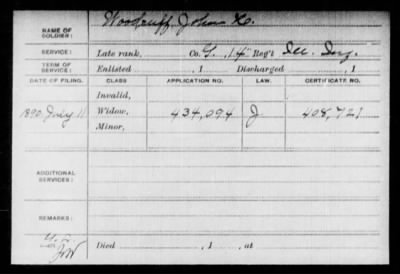 NAME OF SOLDIER: Woodruff, John
SERVICE: Late rank, Co. G, 14 Reg't Ill. Inf.
TERM OF SERVICE: Enlisted , 1 Discharged , 1
DATE OF FILING. CLASS APPLICATION NO. LAW. CERTIFICATE NO.
Invalid,
1890 July 11 Widow, 434,094 J. 408,721
Minor,
ADDITIONAL SERVICES:
REMARKS:
Died , 1 , at